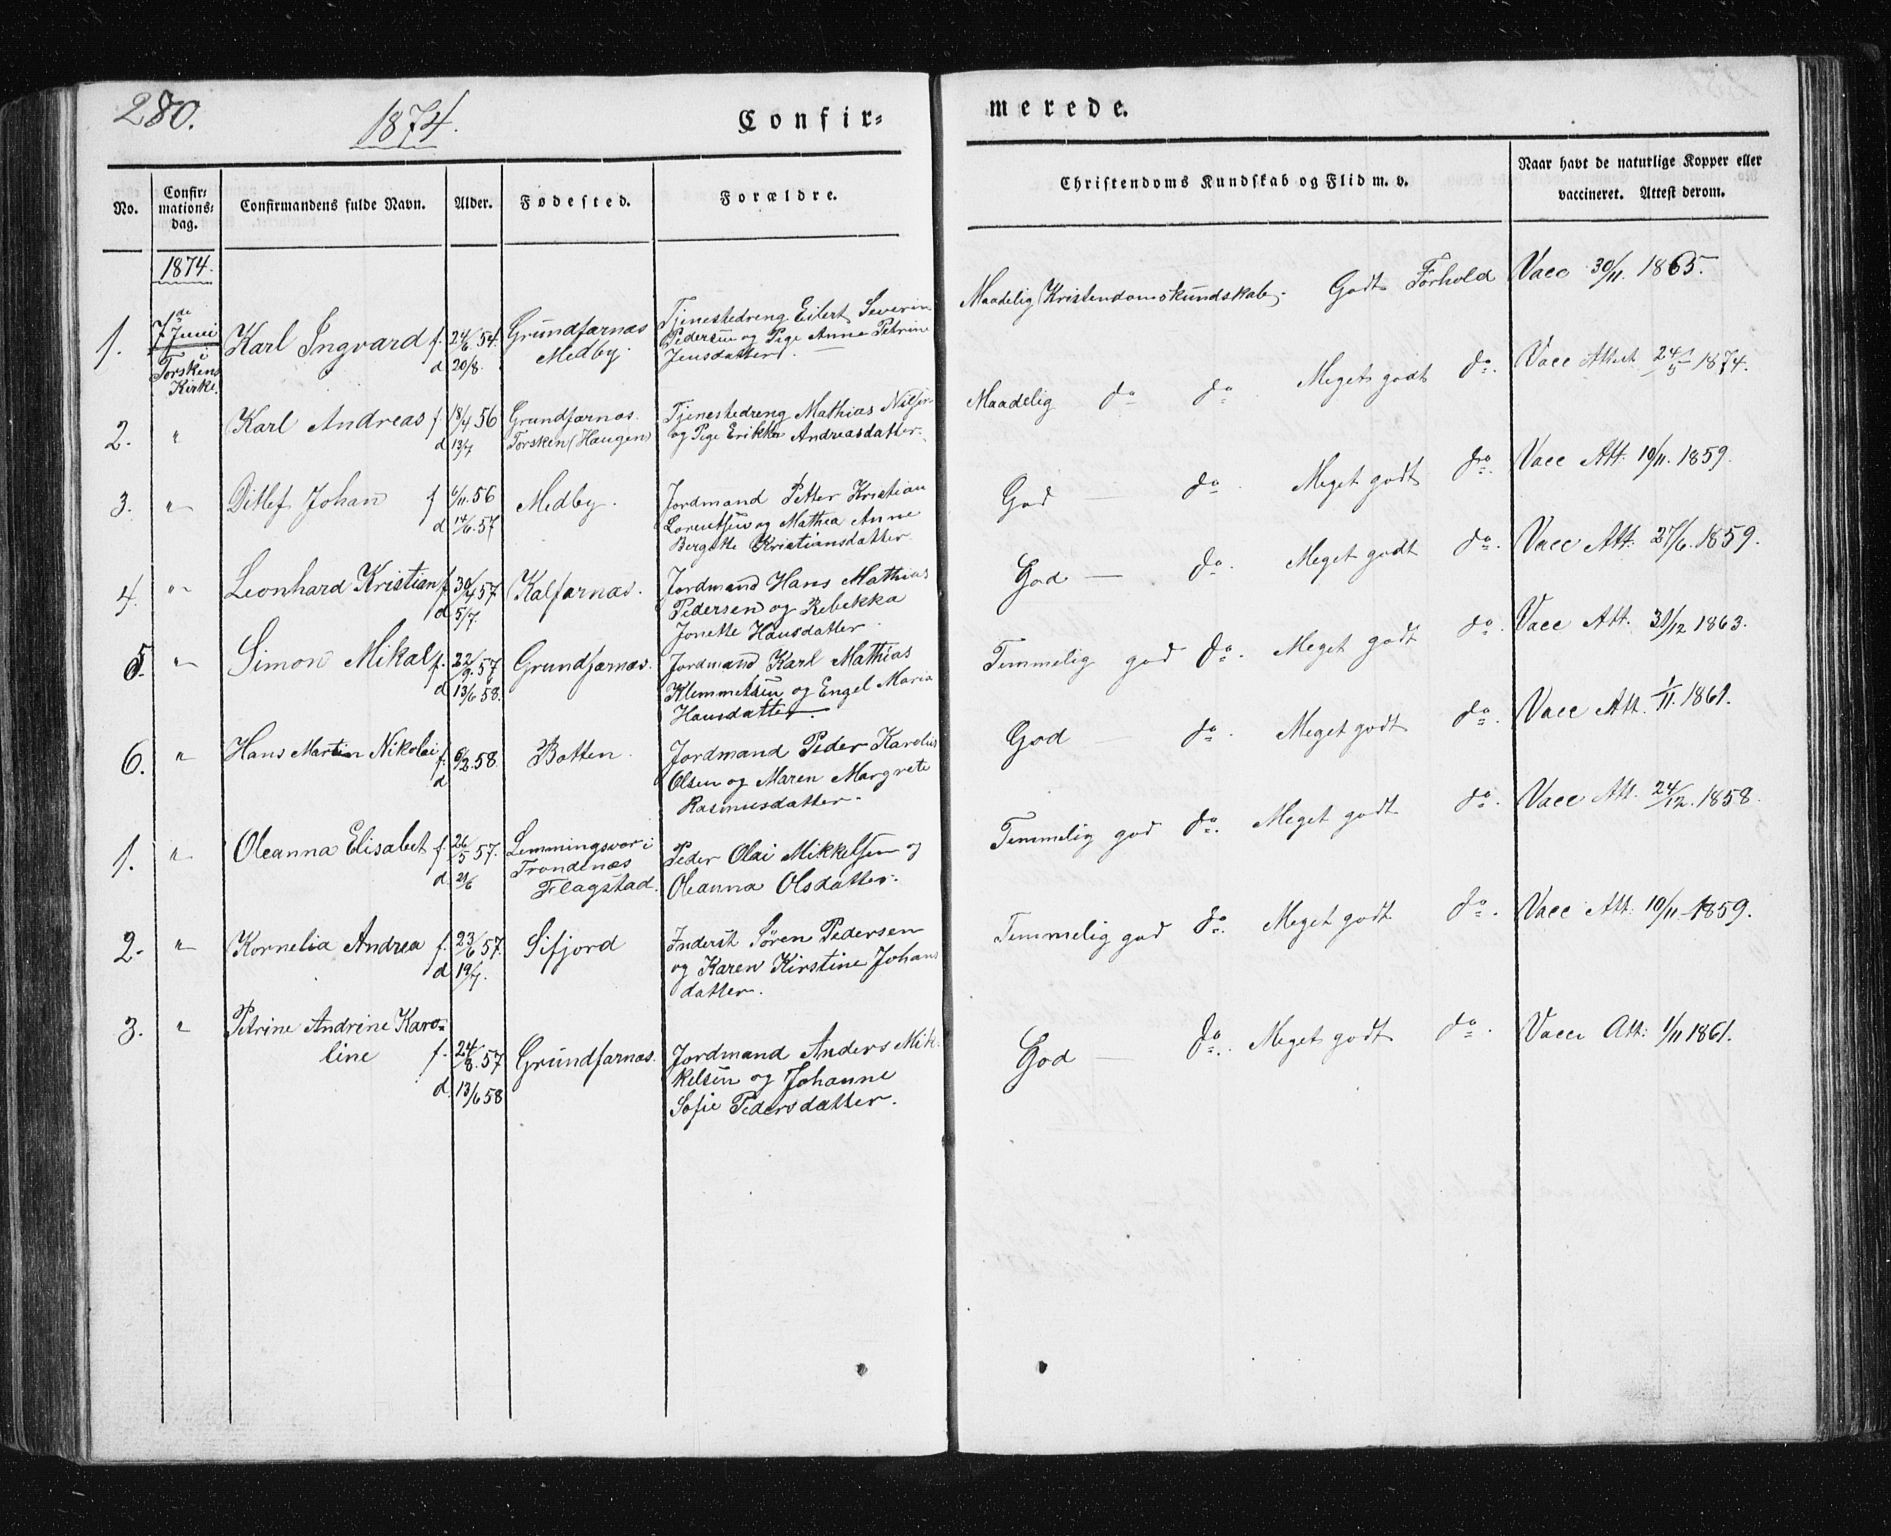 280.
1874.
Confir=
merede.
No.
Confir=
mations=
dag.
Confirmandens fulde Navn.
Alder.
Fødested.
Forældre.
Christendoms Kundskab og Flid m. v.
Naar havt de naturlige Kopper eller
vaccineret. Attest derom.
1874.
1.
7de Juni
i
Torskens
Kirke.
Karl Ingvard f. 24/6 54.
d 20/8.
Grundfarnæs
Medby.
Tjenestedreng Eilert Severin
Pedersen og Pige Anne Petrine
Jensdatter.
Maadelig Kristendomskundskab. Godt Forhold
Vacc 30/11. 1865.
2. "
Karl Andreas f 18/4 56
d 13/7
Grundfarnæs.
Torsken (Haugen)
Tjenestedreng Mathias Nilsen
og Pige Erikka Andreasdatter.
Maadelig do do Meget godt do.
Vacc Attest 24/5 1874.
3. "
Ditlef Johan f 6/11.56
d 14/6.57
Medby.
Jordmand Petter Kristian
Lorentsen og Mathea Anne
Bergitte Kristiansdatter.
God — do. Meget godt do.
Vacc Att. 10/11. 1859.
4. "
Leonhard Kristian f 30/4 57
d 5/7.
Kalfarnæs.
Jordmand Hans Mathias
Pedersen og Rebekka
Jonette Hansdatter.
God — do. Meget godt do.
Vacc Att. 27/6. 1859.
5. "
Simon Mikal f. 22/9. 57
d 13/6 58.
Grundfarnæs.
Jordmand Karl Mathias
Klemmetsen og Engel Maria
Hansdatter.
Temmelig god do. Meget godt do.
Vacc Att. 31/12 1863.
6. "
Hans Martin Nikolai f. 6/2.58
d
Botten.
Jordmand Peder Karolus
Olsen og Maren Margrete
Rasmusdatter.
God do. Meget godt do.
Vacc Att. 1/11. 1861.
1. "
Oleanna Elisabet f. 26/5 57.
d. 21/6
Lemmingsvær i
Trondenæs
Flagstad.
Peder Olai Mikkelsen og
Oleanna Olsdatter.
Temmelig god do. Meget godt do.
Vacc Att. 24/12. 1858.
2. "
Kornelia Andrea f. 23/6 57.
d. 19/7.
Sifjord
Inderst Søren Pedersen
og Karen Kirstine Johans
datter.
Temmelig god do. Meget godt do.
Vacc Att. 10/11 1859.
3. "
Petrine Andrine Karo=
line f. 24/8.57
d. 13/6 58
Grundfarnæs.
Jordmand Anders Mik=
kelsen og Johanne
Sofie Pedersdatter.
God — do. Meget godt do.
Vacc Att: 1/11 1861.